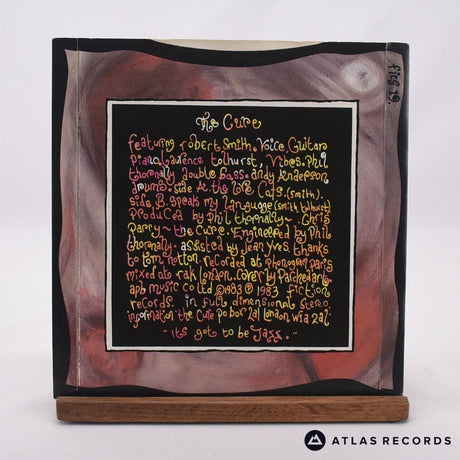 The Cure
featuring robert Smith. Voice, Guitar
Piano, Laurence tolhurst, Vibes. Phil
thornally double Bass. andy Anderson
drums. side A the love Cats. (smith).
side B. speak my language (smith tolhurst)
Produced by phil thornally~ Chris
Parry~ the Cure. Engineered by Phil
thornally. assisted by jean yves. thanks
to tom notton recorded at phonogram paris
mixed at rak london. Cover by Parchedart.
aph music co Ltd ©1983 ℗1983 fiction
records in full dimensional stereo
information: the Cure po box 2al london w1a 2al.
"its got to be Jazz."
fics 19.
ATLAS RECORDS